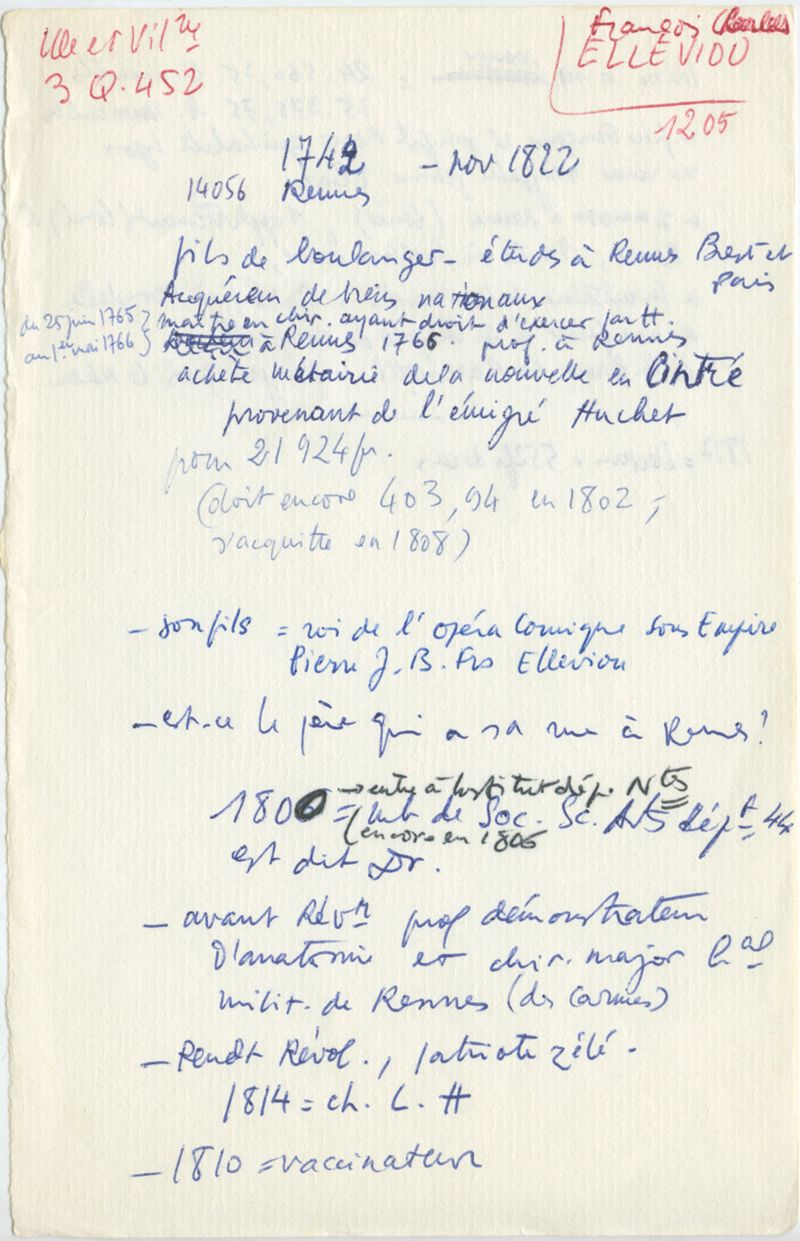 Ille et Vil ne
3 Q. 452
François Charles
ELLEVIOU
1205
1742 - nov 1822
14056 Rennes
fils de boulanger - études à Rennes Brest et
Paris
Acquéreur de biens nationaux
du 25 juin 1765 } maître en chir. ayant droit d'exercer part t.
au 1er mai 1766 } à Rennes 1766 prof. à Rennes
achète métairie de la nouvelle en Cintré
provenant de l'émigré Huchet
pour 21 924 fr.
(doit encore 403,94 en 1802 ;
s'acquitte en 1808)
- son fils = roi de l'opéra Comique sous Empire
Pierre J. B. Frs Elleviou
- est-ce le père qui a sa rue à Rennes ?
→ entre à Institut dép. Nts
1806 = mb de Soc. Sc. Arts dépt 44
(encore en 1806
est dit Dr.
- avant Révn prof démonstrateur
D'anatomie et chir. major hal
milit. de Rennes (des Carmes)
- Pendt Révol., patriote zélé -
1814 = ch. L. H
- 1810 = vaccinateur